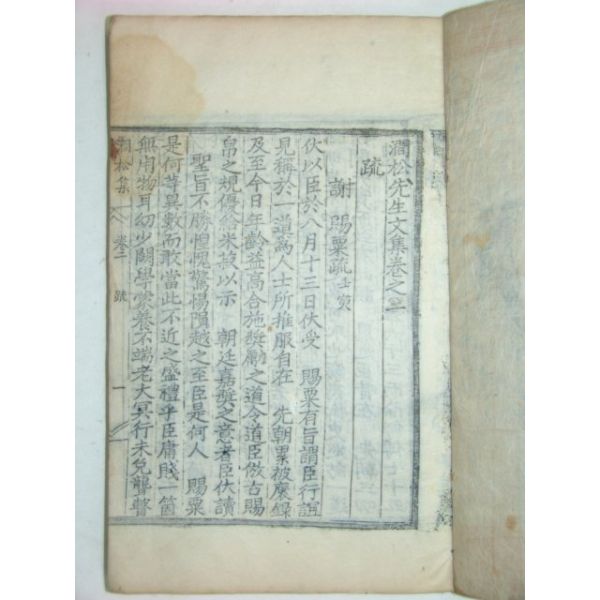 澗松先生文集卷之二
疏
謝 賜粟疏 壬寅
伏以臣於八月十三日伏受 賜粟有旨謂臣行誼
見稱於一道爲人士所推服自在 先朝累被塵錄
及至今日年齡益高合施奬勵之道令道臣倣古賜
帛之規優給米菽以示 朝廷嘉奬之意者臣伏讀
聖旨不勝惶愧驚惕隕越之至臣是何人 賜粟
是何等異數而敢當此不近之盛禮乎臣庸賤一箇
無用物耳幼少闕學蒙養不端老大冥行未免聾瞽
澗松集 卷二 疏 一